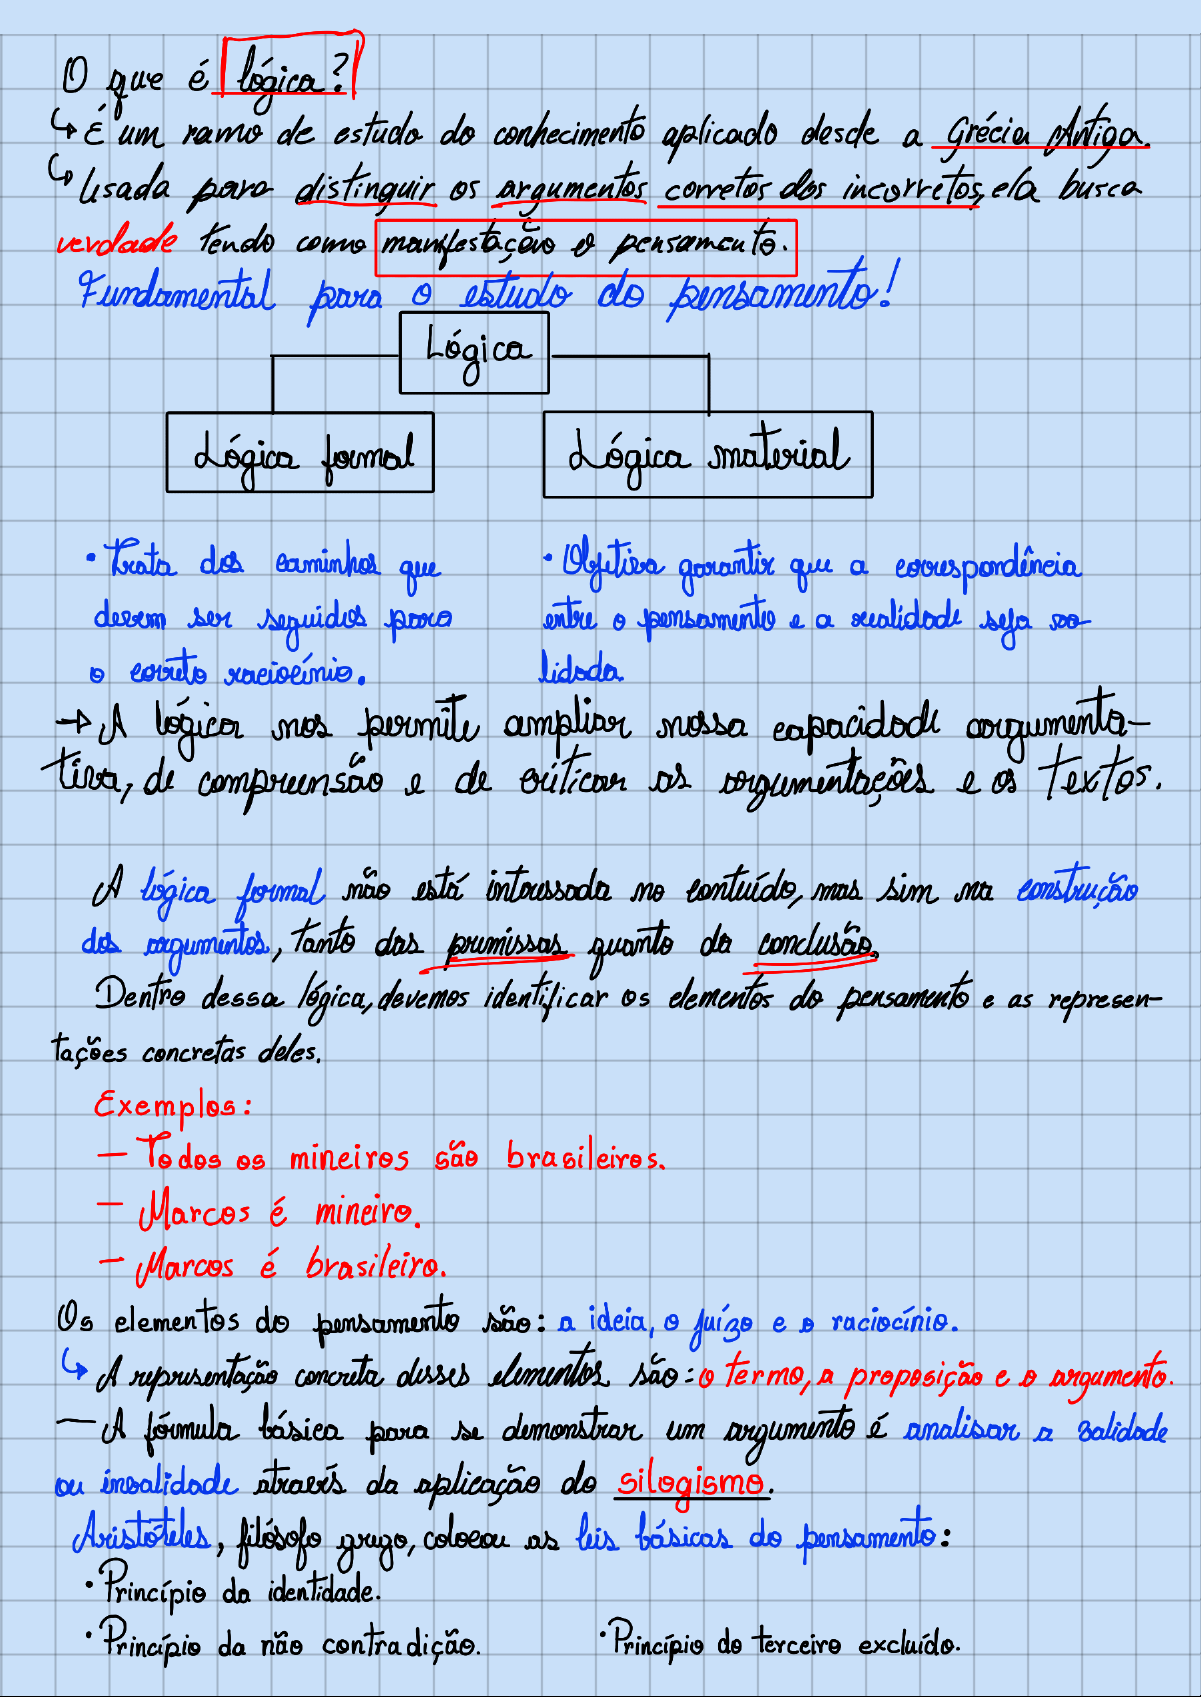 O que é lógica?
↳ É um ramo de estudo do conhecimento aplicado desde a Grécia Antiga.
↳ Usada para distinguir os argumentos corretos dos incorretos, ela busca
verdade tendo como manifestação o pensamento.
Fundamental para o estudo do pensamento!
Lógica
Lógica formal
Lógica material
• Trata dos caminhos que
devem ser seguidos para
o correto raciocínio.
• Objetiva garantir que a correspondência
entre o pensamento e a realidade seja va-
lidada
→ A lógica nos permite ampliar nossa capacidade argumenta-
tiva, de compreensão e de criticar as argumentações e os textos.
A lógica formal não está interessada no conteúdo, mas sim na construção
dos argumentos, tanto das premissas quanto da conclusão.
Dentro dessa lógica, devemos identificar os elementos do pensamento e as represen-
tações concretas deles.
Exemplos:
— Todos os mineiros são brasileiros.
— Marcos é mineiro.
— Marcos é brasileiro.
Os elementos do pensamento são: a ideia, o juízo e o raciocínio.
↳ A representação concreta desses elementos são: o termo, a proposição e o argumento.
— A fórmula básica para se demonstrar um argumento é analisar a validade
ou invalidade através da aplicação do silogismo.
Aristóteles, filósofo grego, colocou as leis básicas do pensamento:
• Princípio da identidade.
• Princípio da não contradição. • Princípio do terceiro excluído.